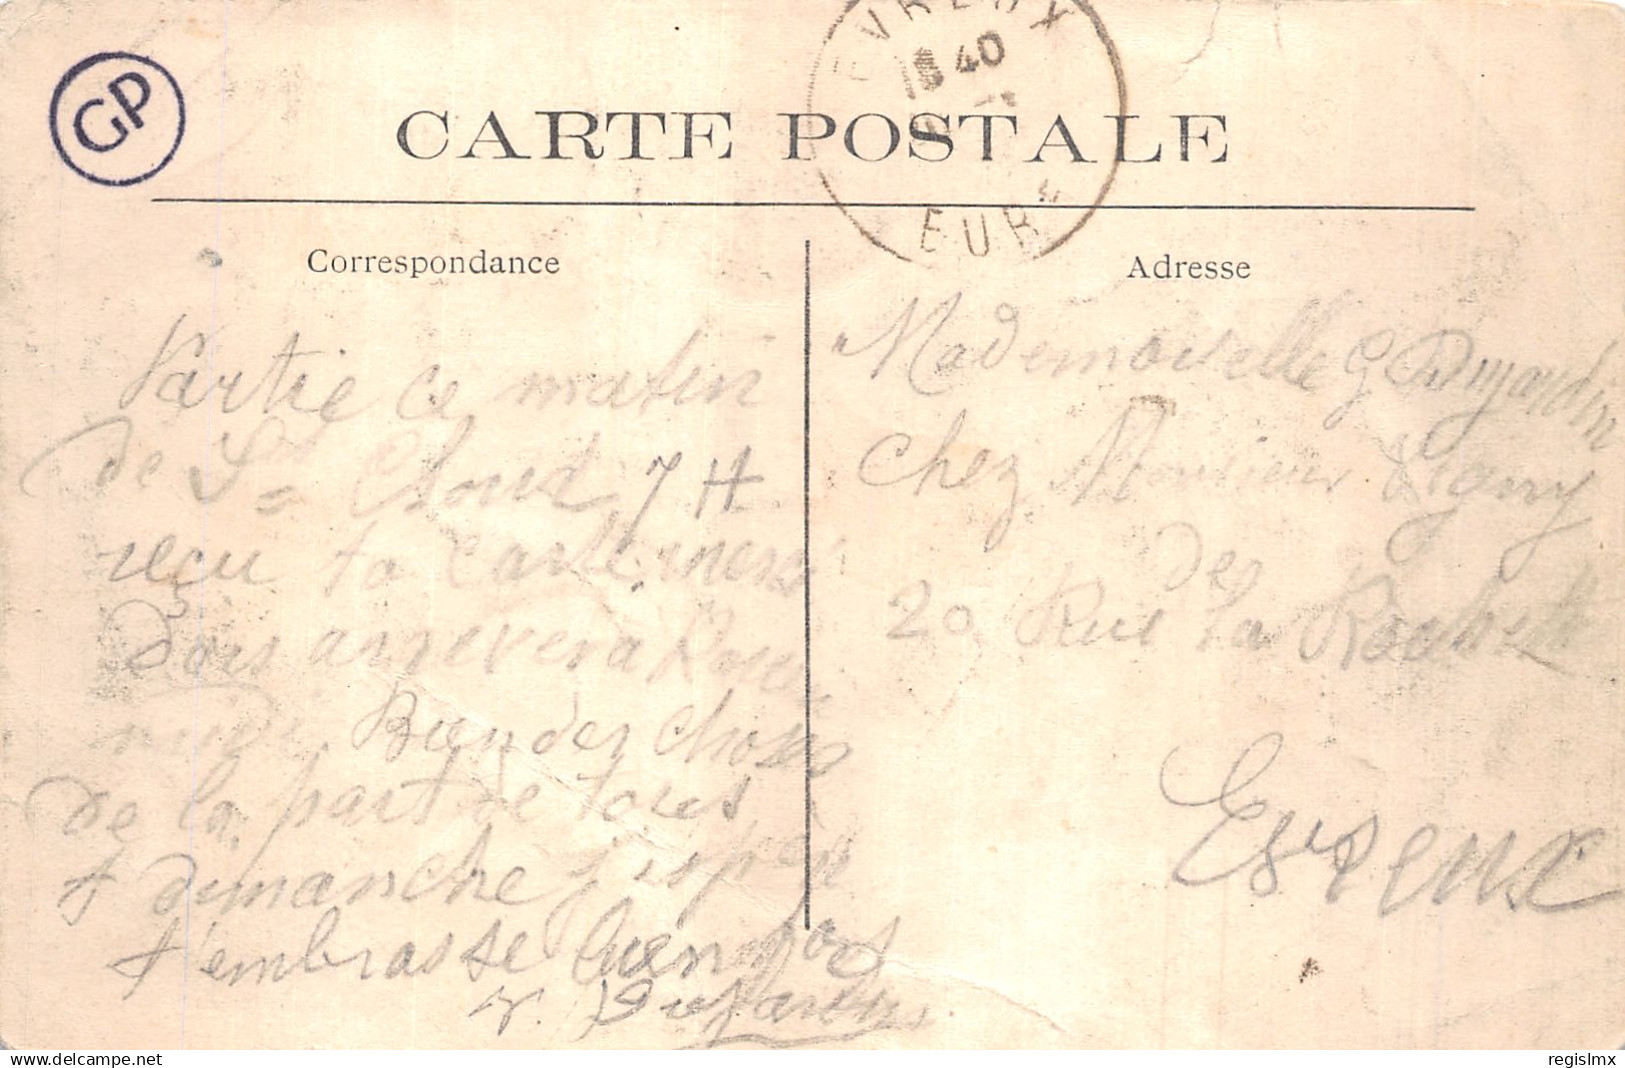 GP
EVREUX
18 40
EURE
CARTE POSTALE
Correspondance
Partie ce matin
de St Cloud 7 H
reçu ta carte merci
Dois arriver à
midi Bien des choses
de la part de tous
à dimanche j'espère
t'embrasse bien fort
V. Dujardin
Adresse
Mademoiselle G Dujardin
chez Monsieur
des
20 Rue la Rochette
Evreux
delcampe.net
regislmx